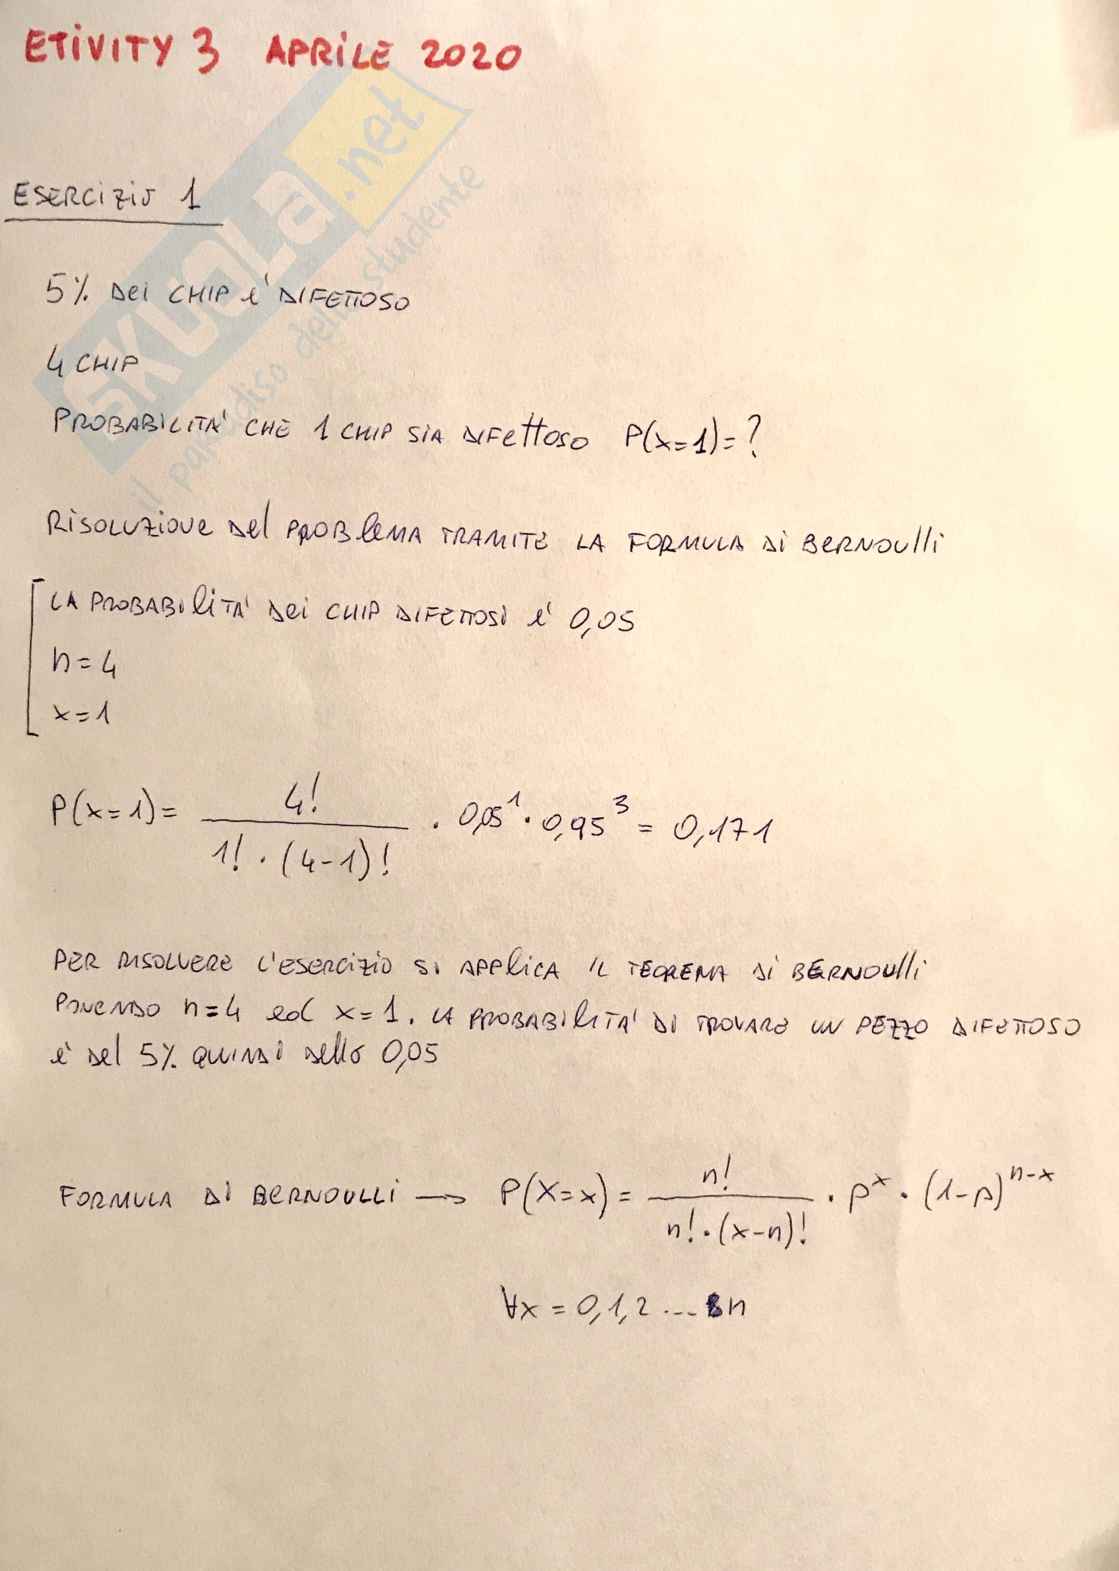 ETIVITY 3 APRILE 2020
SKUOLA.net
il paradiso dello studente
ESERCIZIO 1
5% DEI CHIP E' DIFETTOSO
4 CHIP
PROBABILITA' CHE 1 CHIP SIA DIFETTOSO P(x=1)=?
RISOLUZIONE DEL PROBLEMA TRAMITE LA FORMULA DI BERNOULLI
LA PROBABILITA' DEI CHIP DIFETTOSI E' 0,05
n=4
x=1
P(x=1)= 4! / 1! · (4-1)! · 0,05^1 · 0,95^3 = 0,171
PER RISOLVERE L'ESERCIZIO SI APPLICA IL TEOREMA DI BERNOULLI
PONENDO n=4 ed x=1. LA PROBABILITA' DI TROVARE UN PEZZO DIFETTOSO
E' DEL 5% QUINDI DELLO 0,05
FORMULA DI BERNOULLI → P(X=x) = n! / n! · (x-n)! · p^x · (1-p)^n-x
∀x = 0,1,2 ... n